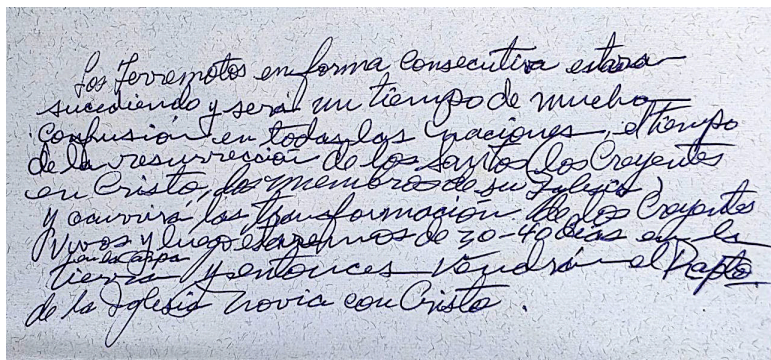 Los Terremotos en forma consecutiva estara
sucediendo y será un tiempo de mucha
confusión en todas las naciones, el tiempo
de la resurrección de los Santos (los Creyentes
en Cristo, los miembros de su Iglesia)
y ocurrirá las transformación de los Creyentes
vivos y luego estaremos de 30-40 días en la
en la carpa
tierra y entonces vendrá el Rapto
de la Iglesia novia con Cristo.